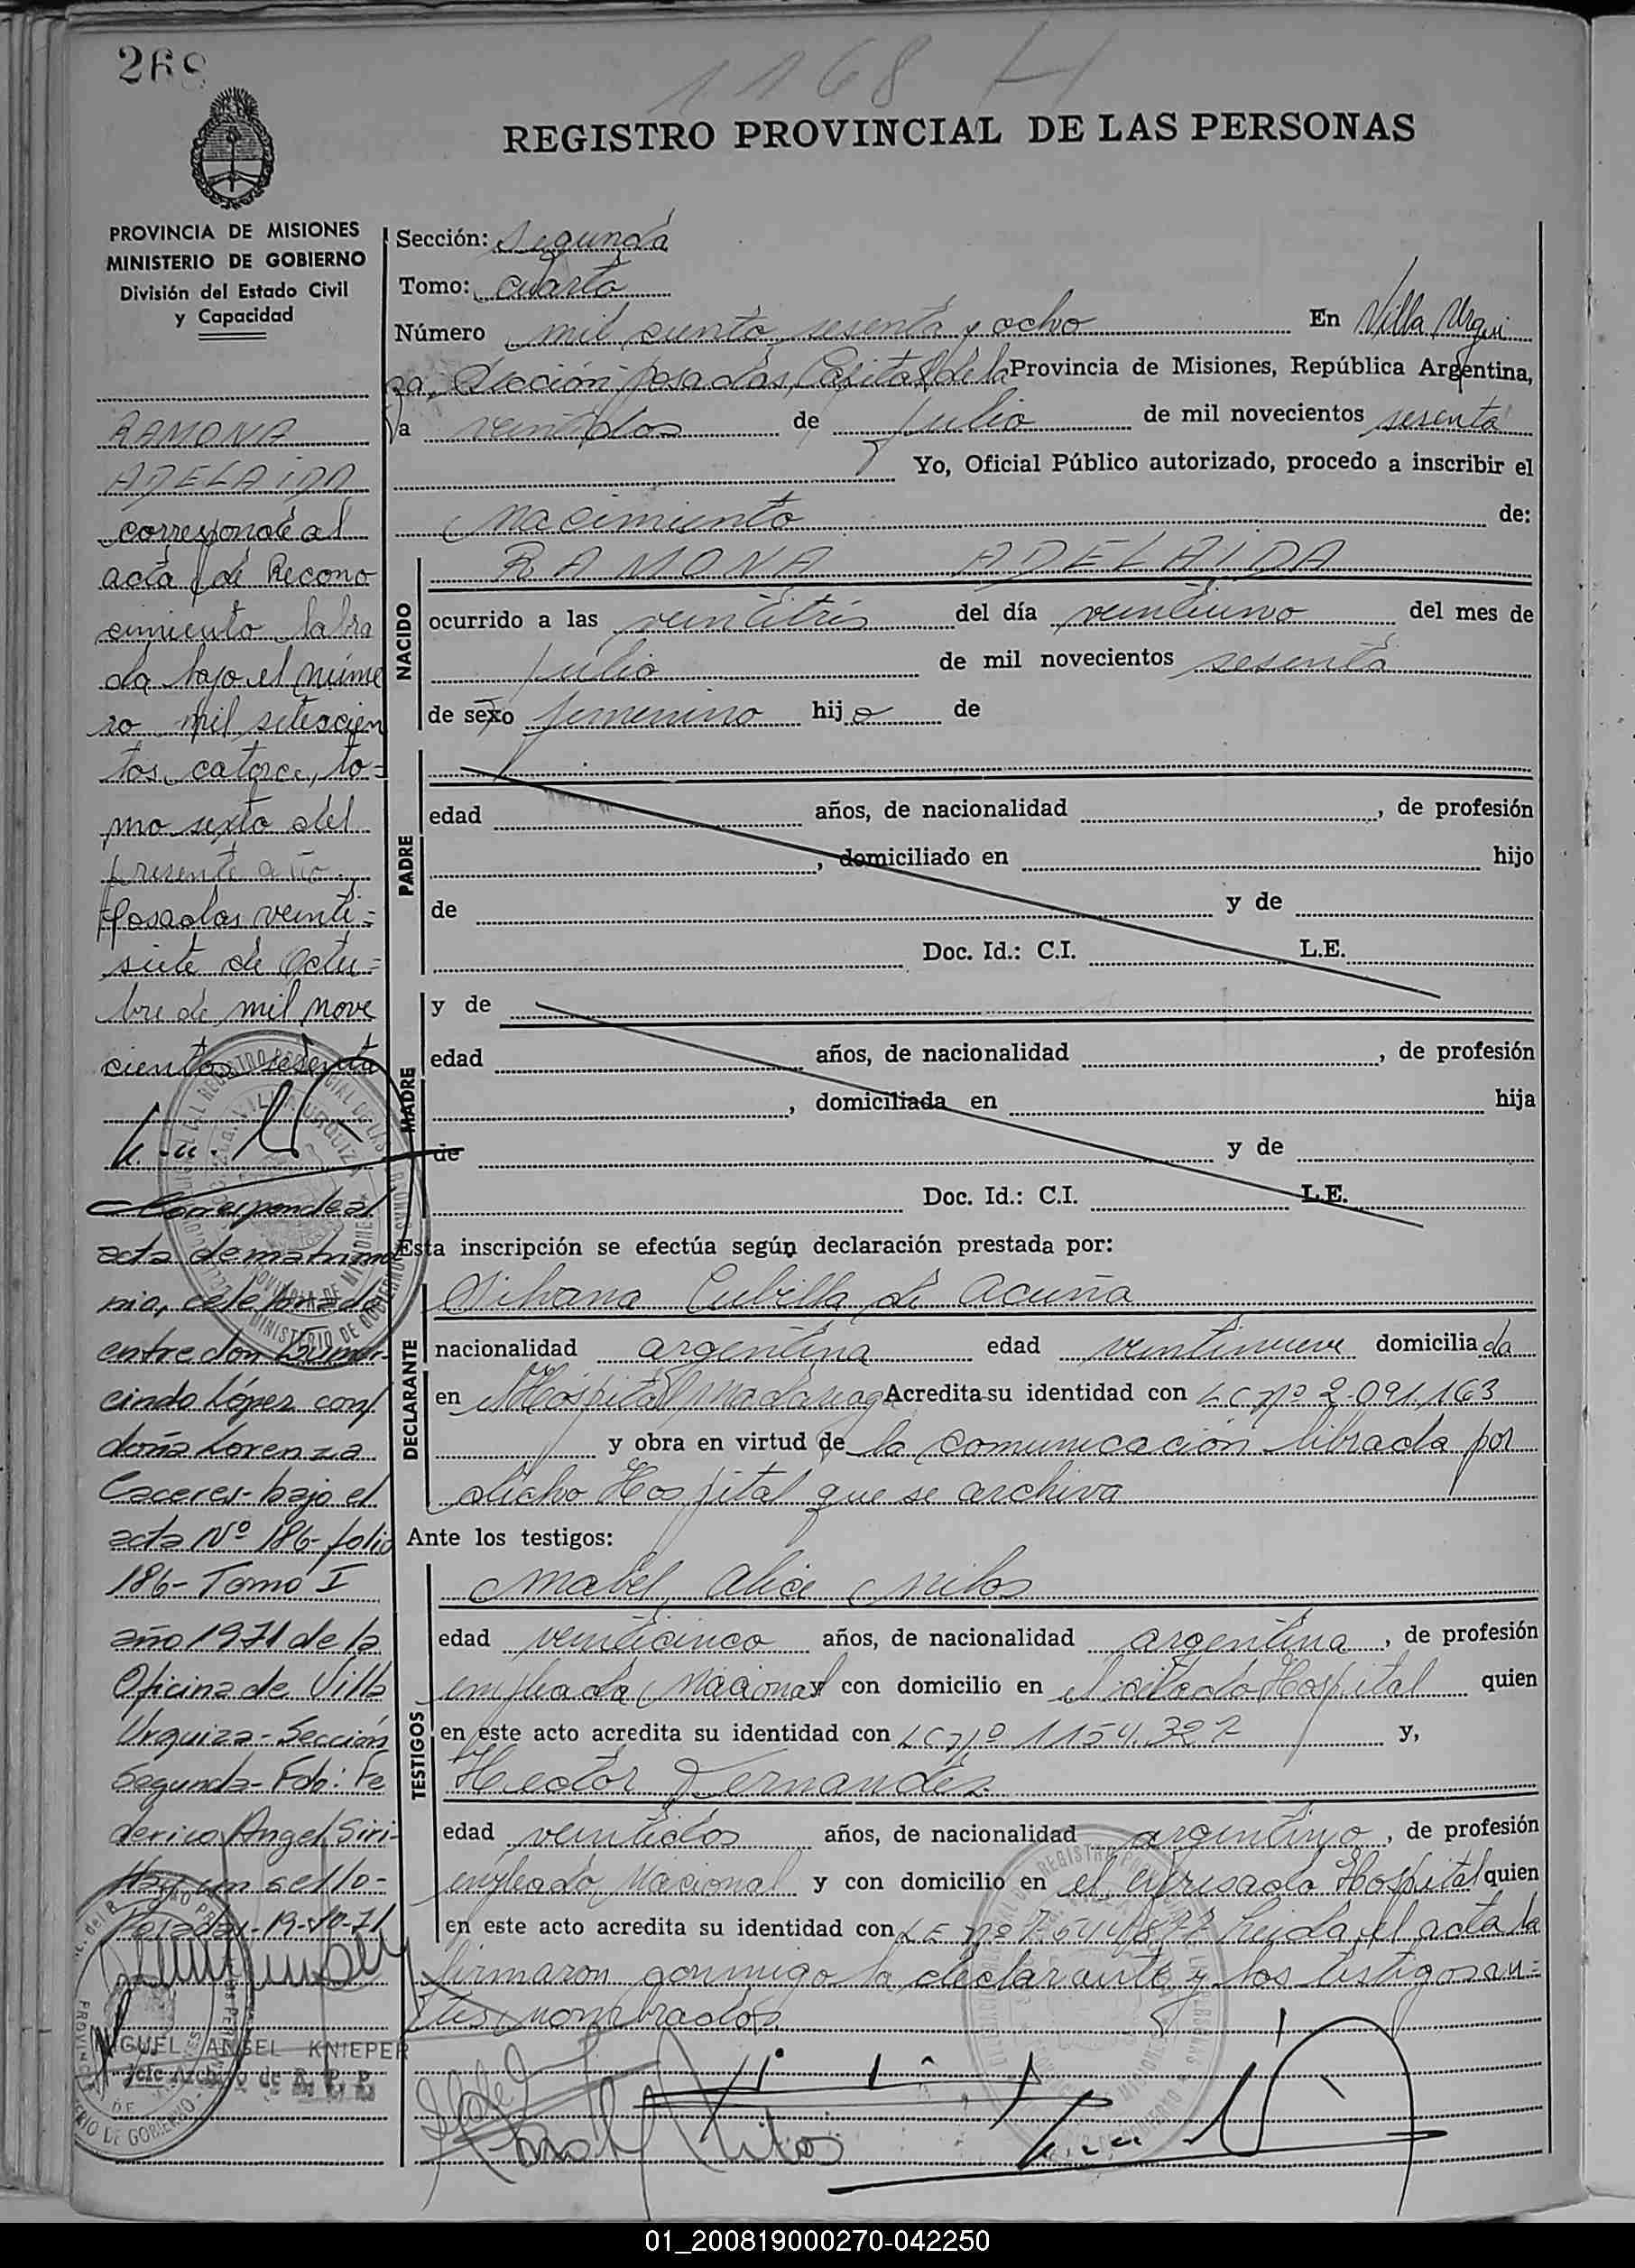 268
1168 H
REGISTRO PROVINCIAL DE LAS PERSONAS
PROVINCIA DE MISIONES
MINISTERIO DE GOBIERNO
División del Estado Civil
y Capacidad
RAMONA
ADELAIDA
corresponde al
acta de Recono
cimiento labra
da bajo el núme
ro mil setecien
tos catorce, to=
mo sexto del
presente año.
Posadas veinti=
siete de Octu=
bre de mil nove
cientos sesenta
Corresponde al
acta de matrimo
nio, celebrado
entre don Gumer-
cindo López con
doña Lorenza
Caceres- bajo el
acta Nº 186- folio
186- Tomo I
año 1971 de la
Oficina de Villa
Urquiza- Sección
Segunda- Fdo: Fe
derico Angel Siri-
Hay un sello-
Posadas-19-10-71
MIGUEL ANGEL KNIEPER
Jefe Archivo de R. P. P.
Sección: Segunda
Tomo: cuarto
Número mil ciento sesenta y ocho En Villa Urqui
za, Sección Posadas, Capital de la Provincia de Misiones, República Argentina,
a veintidos de julio de mil novecientos sesenta
Yo, Oficial Público autorizado, procedo a inscribir el
nacimiento de:
NACIDO
RAMONA ADELAIDA
ocurrido a las veintitrés del día veintiuno del mes de
julio de mil novecientos sesenta
de sexo femenino hija de
PADRE
edad años, de nacionalidad , de profesión
, domiciliado en hijo
de y de
Doc. Id.: C.I. L.E.
MADRE
y de
edad años, de nacionalidad , de profesión
, domiciliada en hija
de y de
Doc. Id.: C.I. L.E.
Esta inscripción se efectúa según declaración prestada por:
DECLARANTE
Silvana Cubilla de Acuña
nacionalidad argentina edad veintinueve domiciliada
en Hospital Madariaga Acredita su identidad con LC nº 2.091.163
y obra en virtud de la comunicación librada por
dicho Hospital que se archiva
Ante los testigos:
TESTIGOS
Mabel Alice Milos
edad veinticinco años, de nacionalidad argentina, de profesión
empleada Nacional y con domicilio en el citado Hospital quien
en este acto acredita su identidad con LC nº 1154.327 y,
Hector Fernandes
edad veintidos años, de nacionalidad argentino, de profesión
empleado Nacional y con domicilio en el expresado Hospital quien
en este acto acredita su identidad con LE nº Leida el acta la
firmaron conmigo la declarante y los testigos an=
tes nombrados
01_200819000270-042250